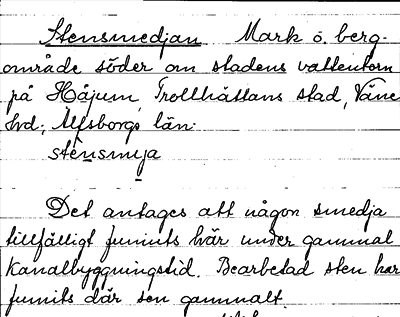 Stensmedjan Mark o. berg-
område söder om stadens vattentorn
på Håjum, Trollhättans stad, Väne
hd; Älfsborgs län.
stensmija
Det antages att någon smedja
tillfälligt funnits här under gammal
Kanalbyggningstid. Bearbetad sten har
funnits där sen gammalt.